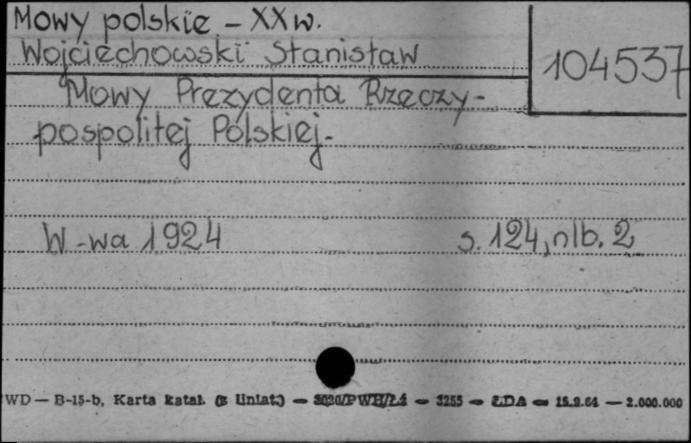 Mowy polskie - XX w.
Wojciechowski Stanisław
104537
Mowy Prezydenta Rzeczy-
pospolitej Polskiej.
W-wa 1924 s. 124, nlb. 2
WD — B-15-b, Karta katal. (z liniat.) — PWH/Łd — 3255 — ŁDA — 15.9.64 — 2.000.000